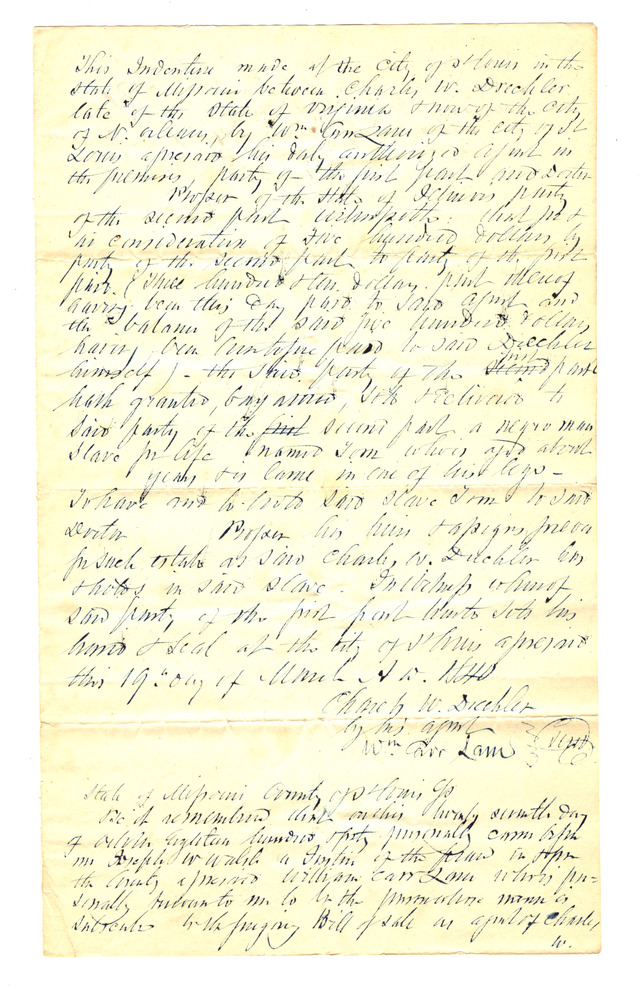 This Indenture made at the city of St Louis in the
State of Missouri between Charles W. Drechler
late of the State of Virginia & now of the city
of N. Orleans, by Wm Carr Lane of the city of St
Louis aforesaid his duly authorized agent in
the premises, party of the first part and Doctor
Prosser of the State of Illinois party
of the second part witnesseth: that
in consideration of five hundred dollars by
party of the second part to party of the first
part. (Three hundred & ten dollars part thereof
having been this day paid to said agent and
the balance of the said five hundred dollars
having been heretofore paid to said Drechler
himself) - the said party of the first part
hath granted, bargained, sold & delivered to
said party of the second part a negro man
Slave for life named Tom who is aged about
years & is lame in one of his legs -
To have and to hold said slave Tom to said
Doctor Prosser his heirs & assigns forever
for such estate as said Charles W. Drechler has
& holds in said slave. In witness whereof
said party of the first part hereto sets his
hand & seal at the city of St Louis aforesaid
this 19th day of March A.D. 1840
Charles W. Drechler
by his agent
Wm Carr Lane Seal
State of Missouri County of St Louis
Be it remembered that on this twenty seventh day
of Eighteen hundred & forty personally came before
me Joseph W Walsh a Justice of the Peace in &
the County aforesaid William Carr Lane who is per=
sonally known to me to be the person whose name is
subscribed to the foregoing Bill of sale as agent of Charles
W.